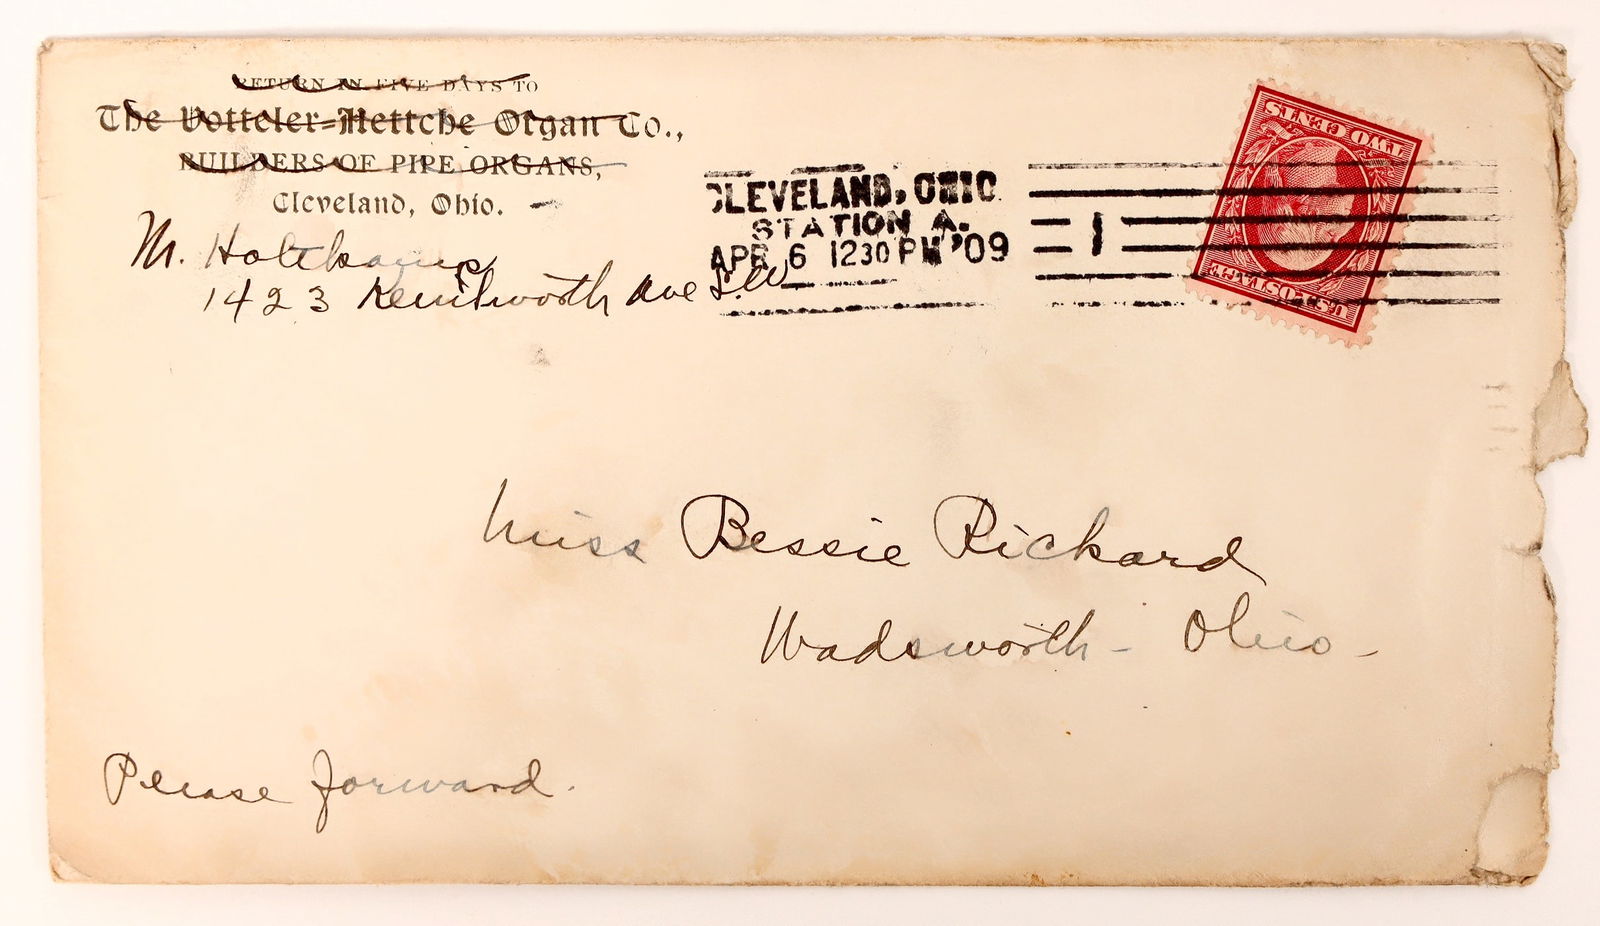 RETURN IN FIVE DAYS TO
The Votteler-Hettche Organ Co.,
BUILDERS OF PIPE ORGANS,
Cleveland, Ohio.
M. Holtkamp
1423 Kenilworth Ave S.W.
CLEVELAND, OHIO
STATION A.
APR 6 1230 PM '09
1
U.S. POSTAGE
TWO CENTS
Miss Bessie Rickard
Wadsworth - Ohio -
Please forward.